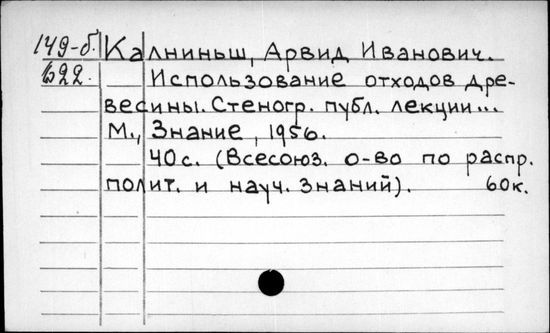 149-б. Калниньш, Арвид Иванович.
622. Использование отходов дре-
весины. Стеногр. публ. лекции...
М., Знание, 1956.
40с. (Всесоюз. о-во по распр.
полит. и науч. знаний). 60к.